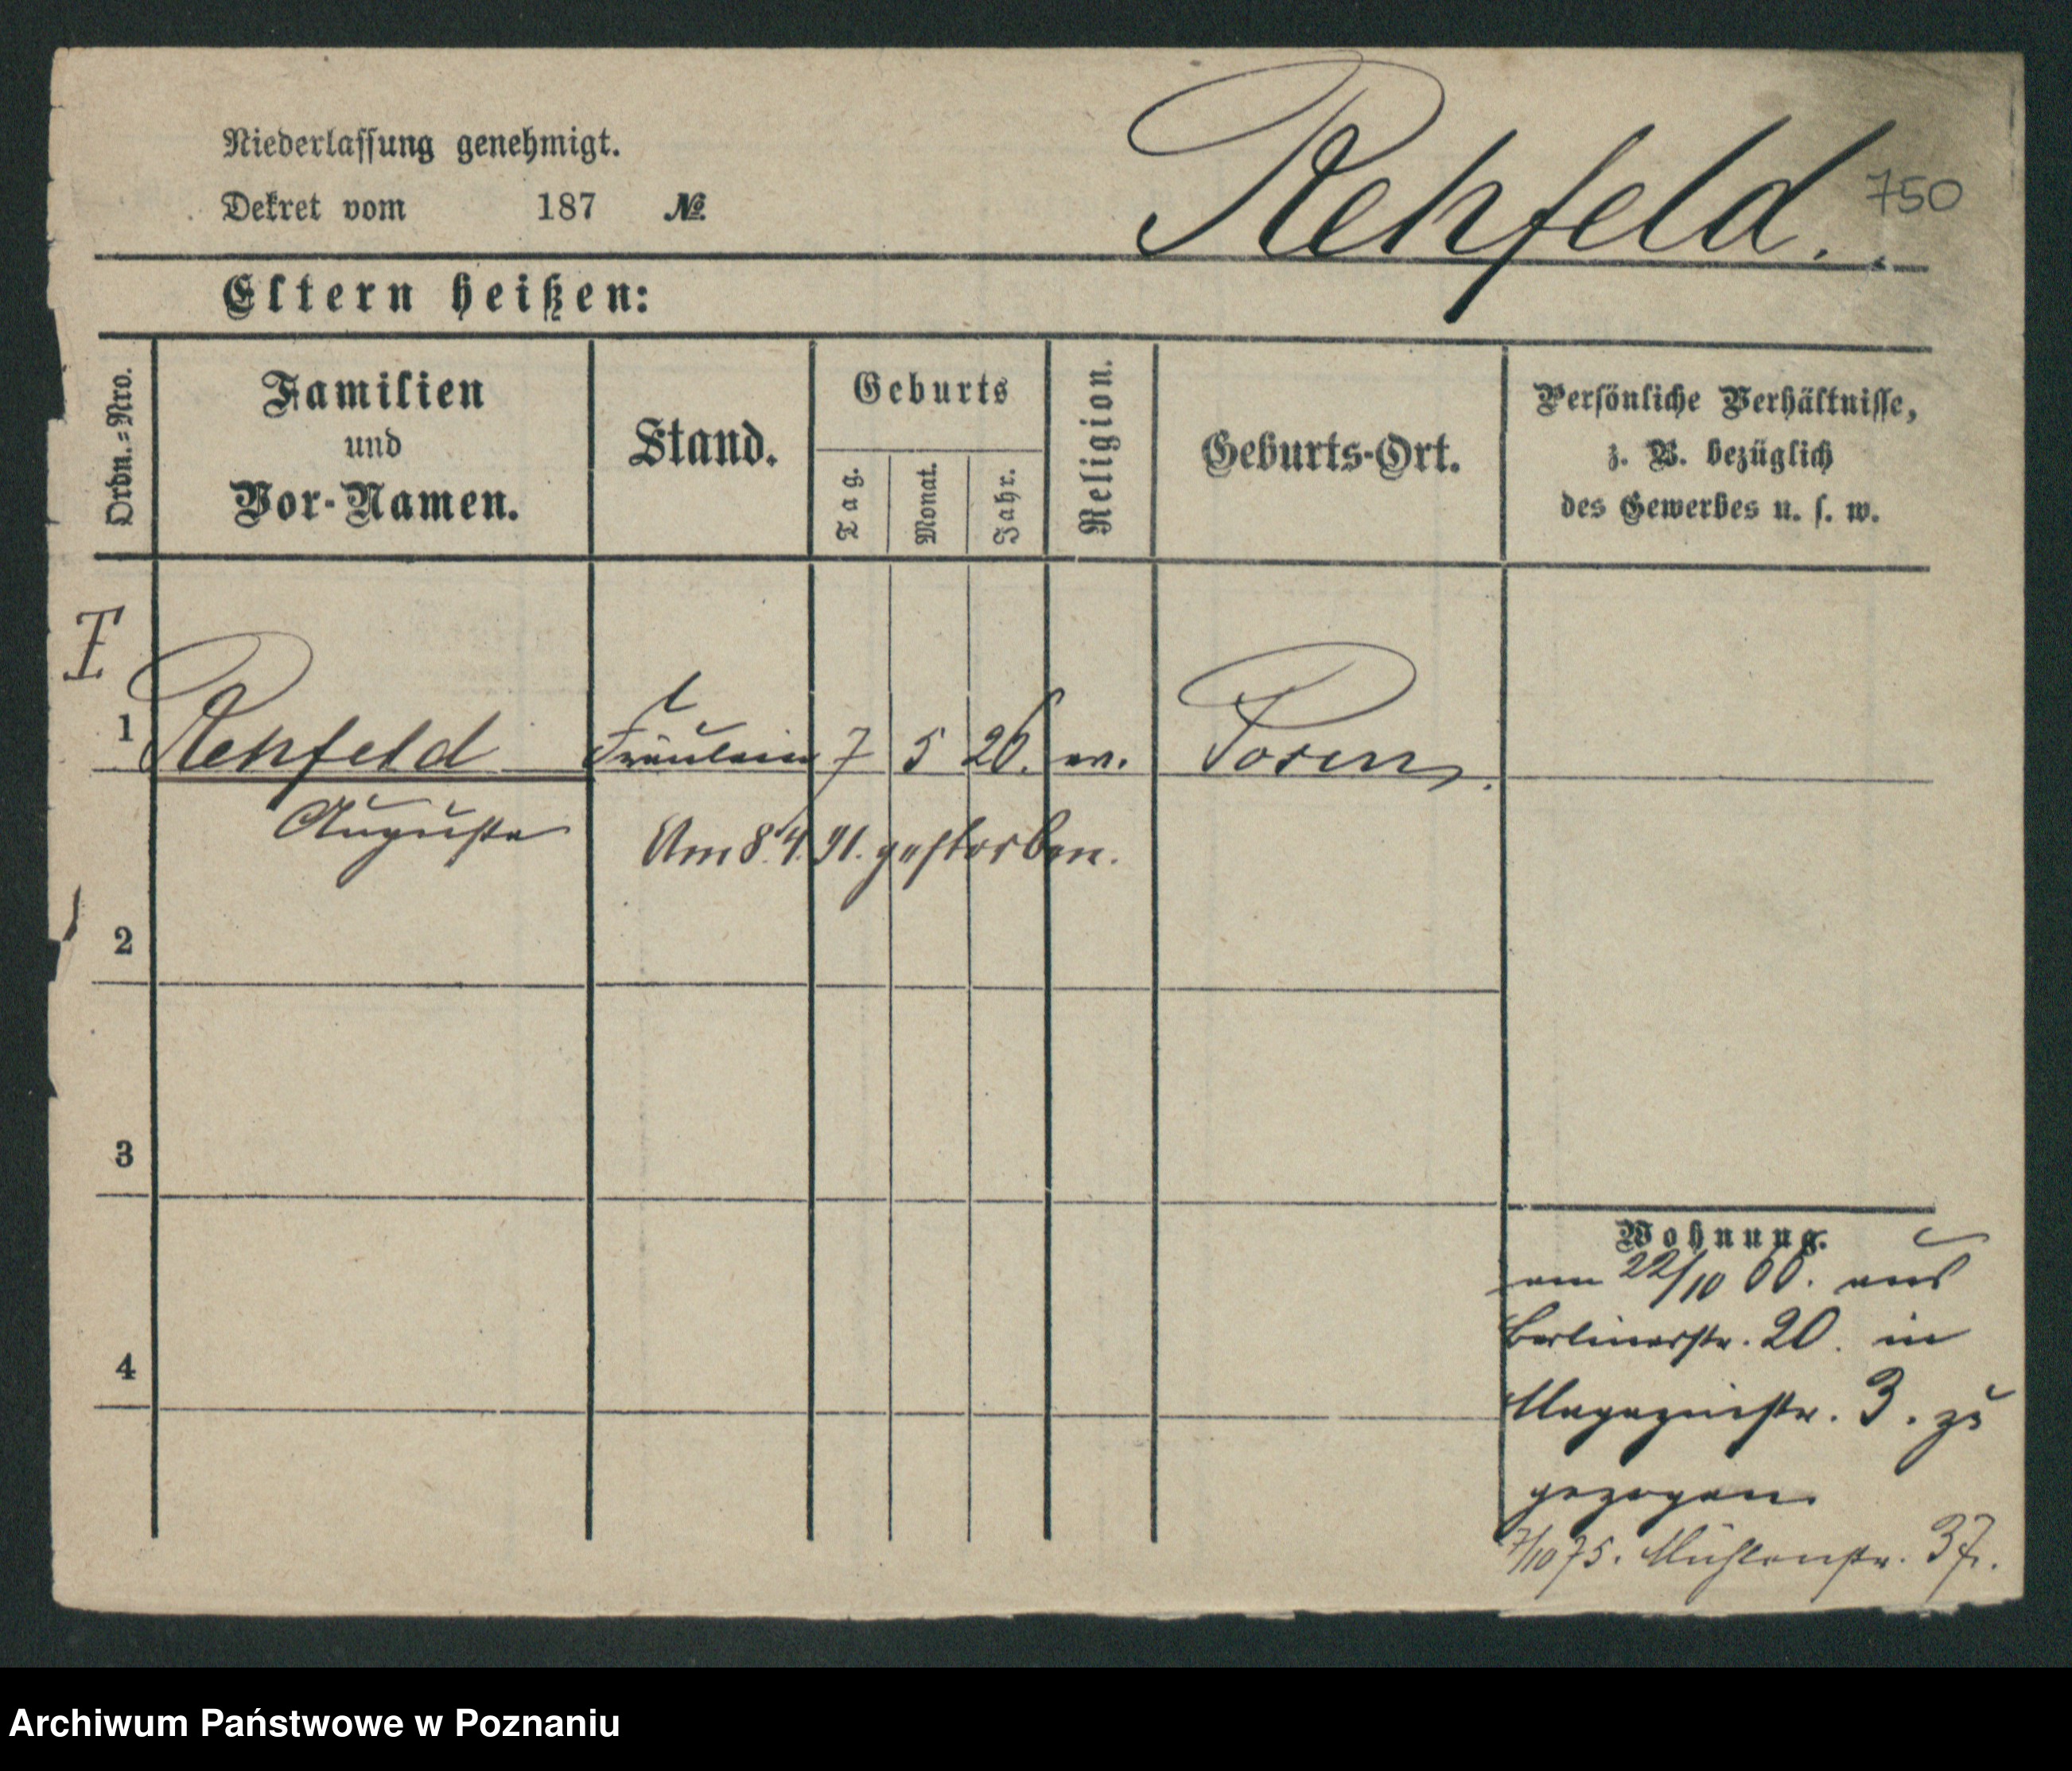 Niederlassung genehmigt.
Dekret vom 187 №
Rehfeld.
750
Eltern heißen:
Ordn.-Nro.
Familien
und
Vor-Namen.
Stand.
Geburts
Tag.
Monat.
Jahr.
Religion.
Geburts-Ort.
Persönliche Verhältnisse,
z. B. bezüglich
des Gewerbes u. s. w.
I
1 Rehfeld Fräulein 7 5 26. ev. Posen.
Auguste
Am 8.4.91. gestorben.
2
3
4
Wohnung.
am 22/10 66. aus
Berlinerstr. 20. in
Magazinstr. 3. zu
gezogen.
7/10 75. Mühlenstr. 37.
Archiwum Państwowe w Poznaniu